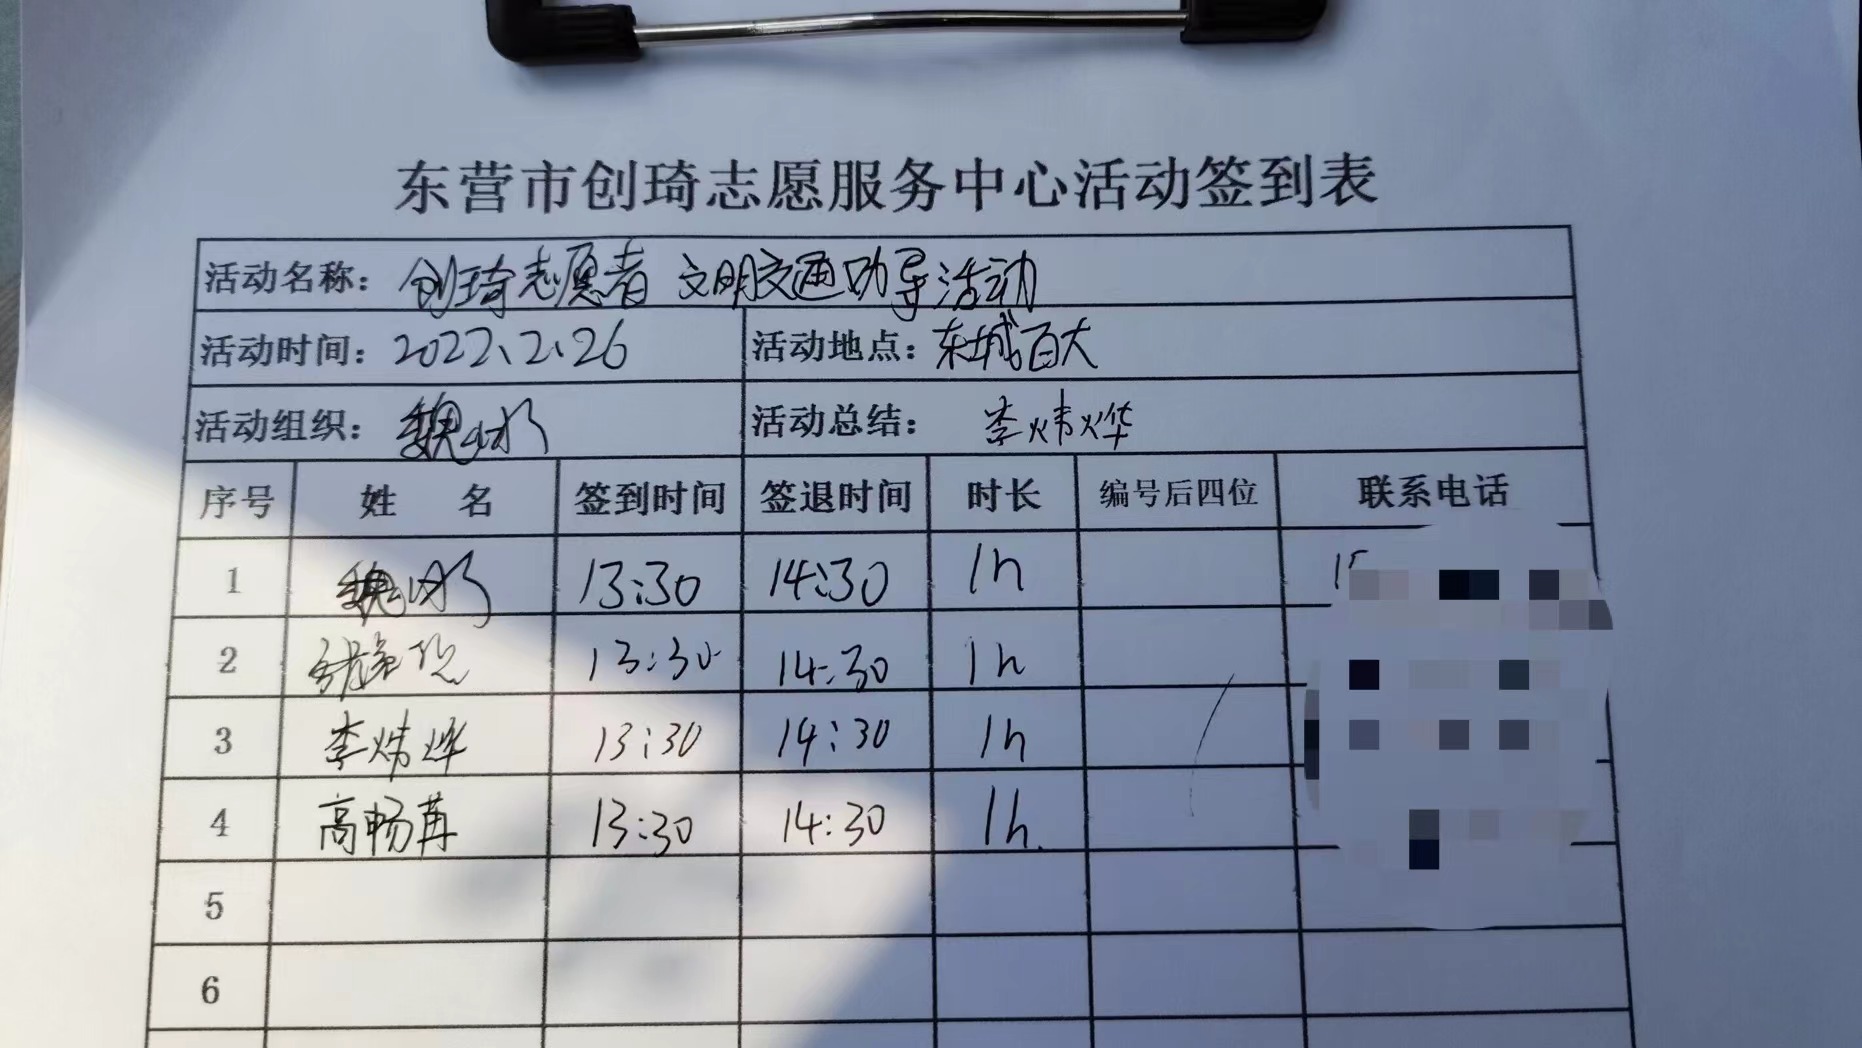 东营市创琦志愿服务中心活动签到表
活动名称：创琦志愿者 文明交通劝导活动
活动时间：2022、2、26 活动地点：东城百大
活动组织：魏 活动总结：李炜烨
序号 姓 名 签到时间 签退时间 时长 编号后四位 联系电话
1 魏 13:30 14:30 1h 15
2 13:30 14:30 1h
3 李炜烨 13:30 14:30 1h
4 高畅苒 13:30 14:30 1h.
5
6